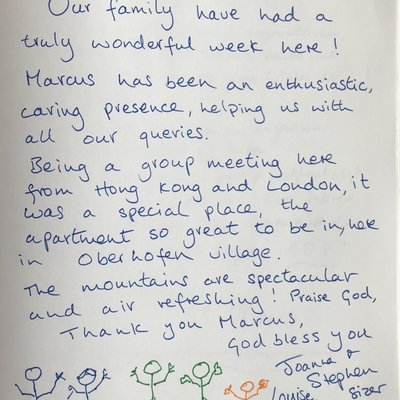 Our family have had a
truly wonderful week here!
Marcus has been an enthusiastic,
caring presence, helping us with
all our queries.
Being a group meeting here
from Hong Kong and London, it
was a special place, the
apartment so great to be in, here
in Oberhofen village.
The mountains are spectacular
and air refreshing! Praise God,
Thank you Marcus,
God bless you
Joanna &
Stephen
Louise Sizer